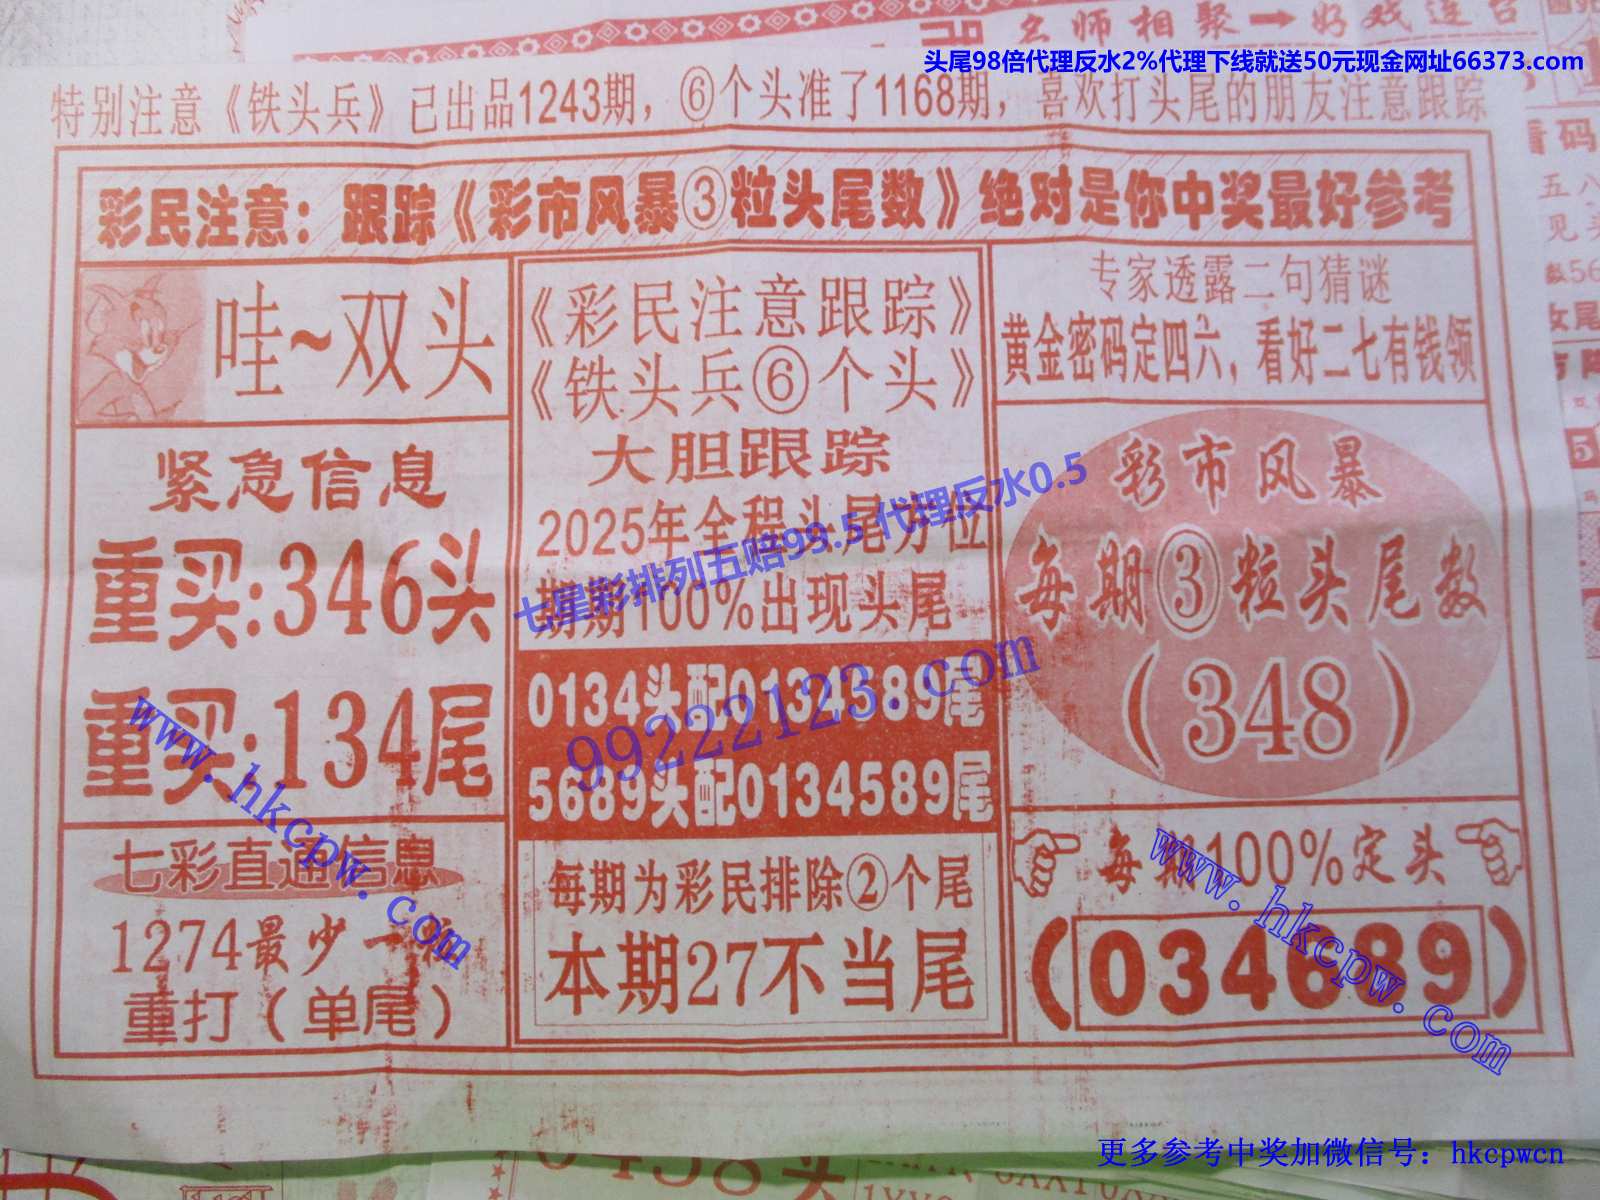 名师相聚→好戏连台
头尾98倍代理反水2%代理下线就送50元现金网址66373.com
特别注意《铁头兵》已出品1243期，⑥个头准了1168期，喜欢打头尾的朋友注意跟踪
彩民注意：跟踪《彩市风暴③粒头尾数》绝对是你中奖最好参考
哇~双头
紧急信息
重买:346头
重买:134尾
七彩直通信息
1274最少一
重打（单尾）
《彩民注意跟踪》
《铁头兵⑥个头》
大胆跟踪
2025年全程头尾方位
期期100%出现头尾
0134头配0134589尾
5689头配0134589尾
每期为彩民排除②个尾
本期27不当尾
专家透露二句猜谜
黄金密码定四六，看好二七有钱领
彩市风暴
每期③粒头尾数
（348）
每期100%定头
（034689）
七星彩排列五赔99.5 代理反水0.5
99222123.com
www.hkcpw.com
www.hkcpw.com
看码
五八
见头
数56
女尾
0458头
更多参考中奖加微信号：hkcpwcn